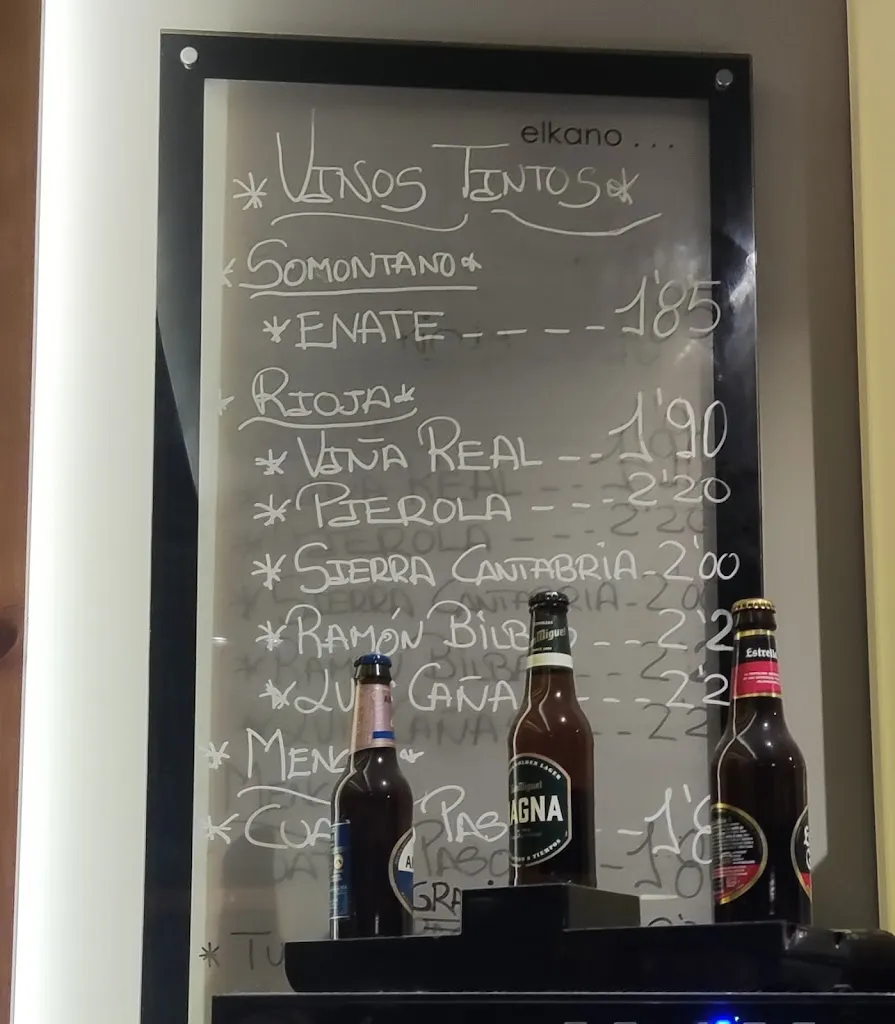 elkano...
* VINOS TINTOS *
* SOMONTANO *
* ENATE ----- 1'85
* RIOJA *
* VIÑA REAL -- 1'90
* PIEROLA --- 2'20
* SIERRA CANTABRIA - 2'00
* RAMÓN BILB --- 2'2
* LUI CAÑA -- 2'2
* MEN *
* CUA PAS -- 1'8
GRA
* TU
Miguel
Miguel
AGNA
Estrella